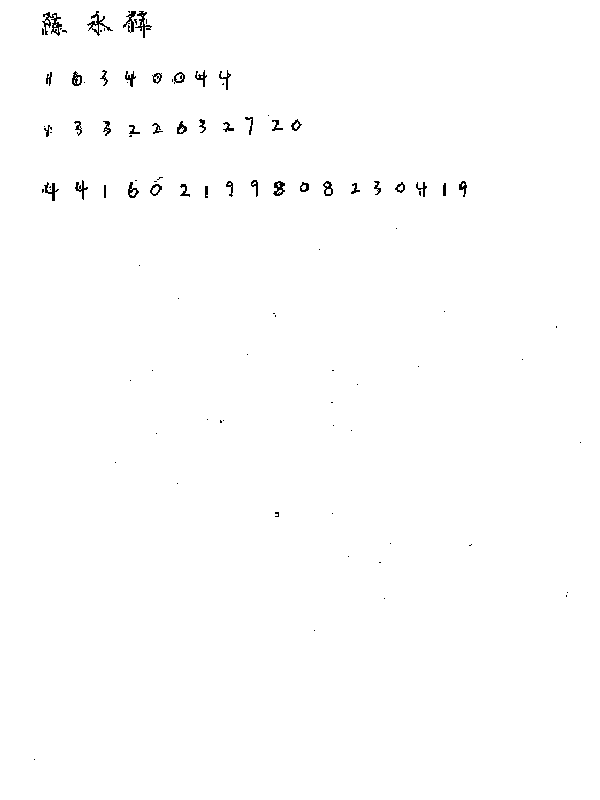 陈永
16340044
13322632720
441602199808230419